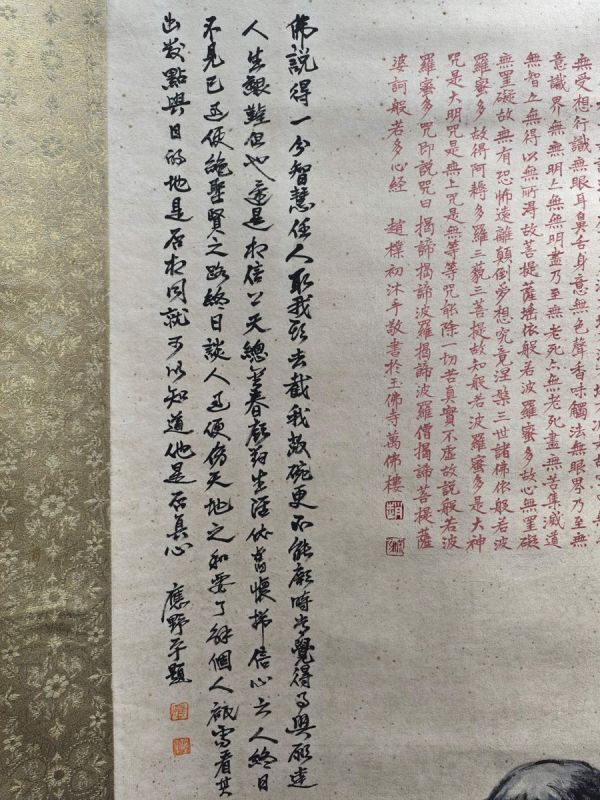 無受想行識無眼耳鼻舌身意無色聲香味觸法無眼界乃至無
意識界無無明亦無無明盡乃至無老死亦無老死盡無苦集滅道
無智亦無得以無所得故菩提薩埵依般若波羅蜜多故心無罣礙
無罣礙故無有恐怖遠離顛倒夢想究竟涅槃三世諸佛依般若波
羅蜜多故得阿耨多羅三藐三菩提故知般若波羅蜜多是大神
咒是大明咒是無上咒是無等等咒能除一切苦真實不虛故説般若波
羅蜜多咒即説咒曰揭諦揭諦波羅揭諦波羅僧揭諦菩提薩
婆訶般若多心經 趙樸初沐手敬書於玉佛寺萬佛樓
佛説得一分智慧任人取我頭去截我數碗更不能顧時常覺得事與願違
人生艱難但也還是相信上天總會眷顧對生活依舊懷揣信心云人終日
不見己過便絶聖賢之路終日談人過便傷天地之和要了解個人祗需看其
出发點與目的地是否相同就可以知道他是否真心 應野平題